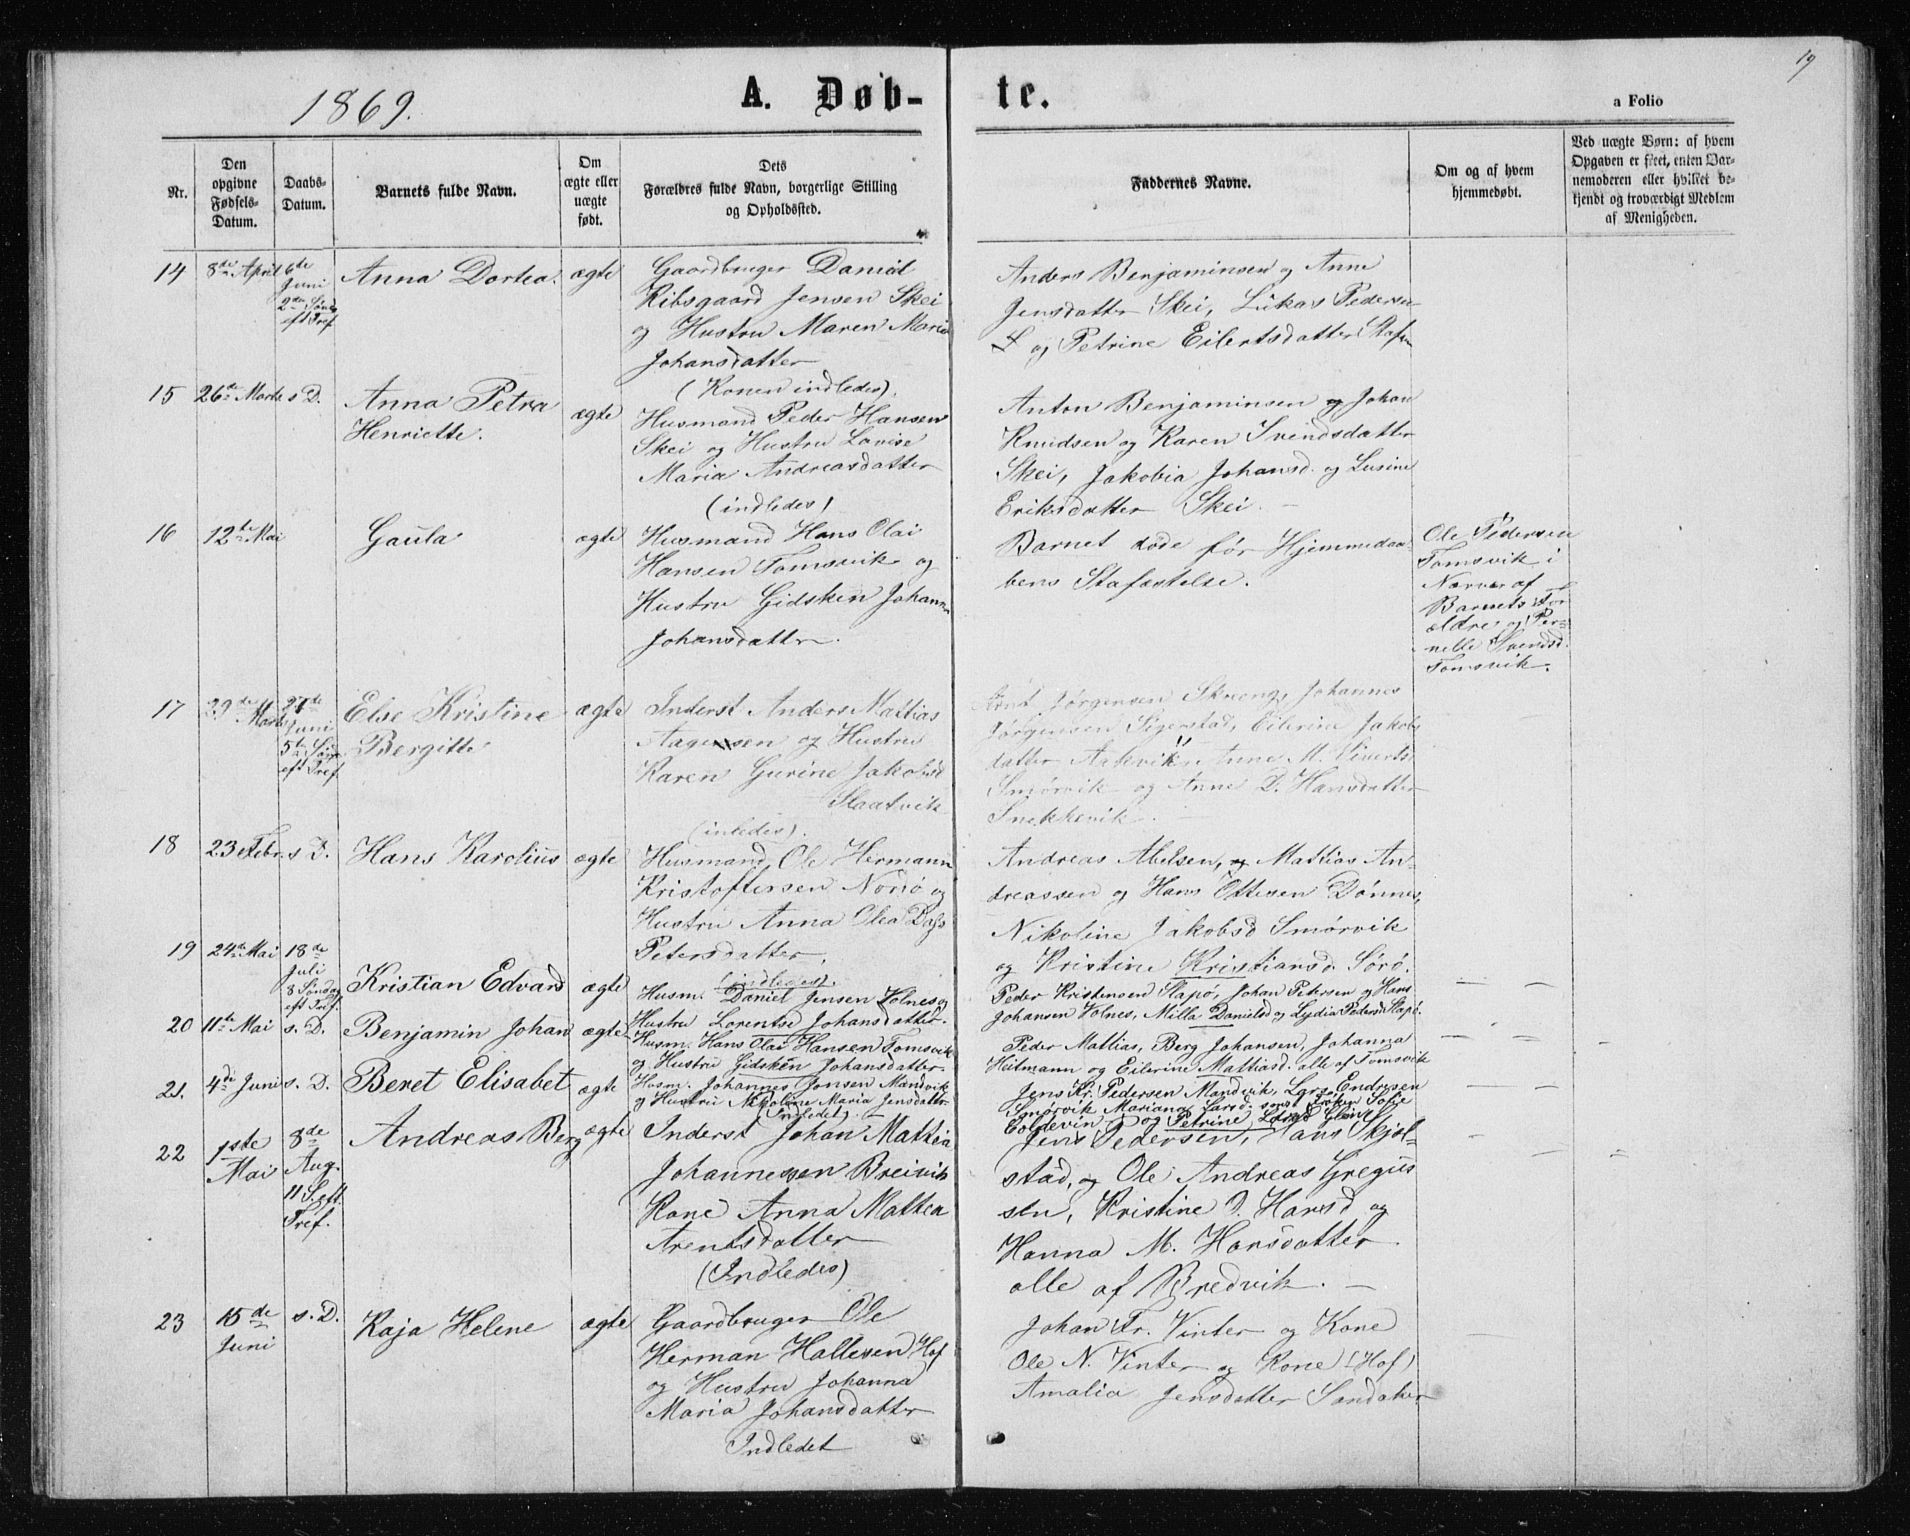 19
1869.
A. Døb-
te.
a Folio
Nr.
Den
opgivne
Fødsels-
Datum.
Daabs-
Datum.
Barnets fulde Navn.
Om
ægte eller
uægte
født.
Dets
Forældres fulde Navn, borgerlige Stilling
og Opholdssted.
Faddernes Navne.
Om og af hvem
hjemmedøbt.
Ved uægte Børn: af hvem
Opgaven er skeet, enten Bar-
nemoderen eller hvilket be-
kjendt og troværdigt Medlem
af Menigheden.
14
8de April
6te
Juni
2den Sønd
eft Tref
Anna Dortea.
ægte
Gaardbruger Daniel
Ribsgaard Jensen Skei
og Hustru Maren Maria
Johansdatter
(Konen indledes).
Anders Benjaminsen og Anne
Jensdatter Skei, Lukas Pedersen
og Petrine Eilertsdatter
15
26de Marts
s D.
Anna Petra
Henriette.
ægte
Husmand Peder Hansen
Skei og Hustru Lovise
Maria Andreasdatter
(indledes)
Anton Benjaminsen og Johan
Knudsen og Karen Svendsdatter
Skei, Jakobia Johansd. og Lusine
Eriksdatter Skei. -
16
12te Mai
Gaula
ægte
Husmand Hans Olai
Hansen Tomsvik og
Hustru Gidsken Johanna
Johansdatter.
Barnet døde før Hjemmedaa-
bens Stafæstelse.
Ole Pedersen
Tomsvik i
Nærvær af
Barnets For
ældre og Per-
nelle Svendsd.
Tomsvik.
17
29de
Marts
27de
Juni
5te Sønd
eft Tref.
Else Kristine
Bergitte
ægte
Inderst Anders Mattias
Aagensen og Hustru
Karen Gurine Jakobsd
Slaatvik
(inledes).
Arnt Jørgensen Skrong, Johannes
Jørgensen Sigerstad, Eilerine Jakobs
datter Aakvik, Anne M. Siverts
Smørvik og Anne D. Hansdatter
Snekkevik.
18
23 Febr.
s D.
Hans Karolius
ægte
Husmand Ole Hermann
Kristoffersen Nordø og
Hustru Anna Olea Dass
Petersdatter.
(indledes).
Andreas Abelsen, og Mattias An-
dreassen og Hans Ottesen Dønnes,
Nikoline Jakobsd Smørvik
og Kristine Kristiansd. Sørø.
19
24de Mai
18de
Juli
8 Søndag
eft Tref.
Kristian Edvard
ægte
Husm. Daniel Jensen Volnes og
Hustru Lorentse Johansdatter.
Peder Kristensen Slapø, Johan Petersen og Hans
Johansen Volnes, Milla Danielsd og Lydia Pedersd Slapø.
20
11te Mai
s. D.
Benjamin Johan
ægte
Husm. Hans Olai Hansen Tomsvik
og Hustru Gidsken Johansdatter.
Peder Mattias, Berg Johansen, Johanna
Heitmann og Eilerine Mattiasd. alle af Tomsvik
21.
4de Juni
s. D.
Beret Elisabet
ægte
Husm. Johannes Jonsen Mandvik
og Hustru Nikoline Maria Jensdatter
(Indledet).
Jens Kr. Pedersen Mandvik, Lars Endresen
Smørvik Mariane Larsd. samt Frøken Sofie
Coldevin og Petrine Larsd Glein
22
1ste
Mai
8de
Aug.
11 S. eft.
Tref.
Andreas Berg
ægte
Inderst Johan Mattia
Johannessen Breivik
Kone Anna Mattea
Arentsdatter
(Indledes)
Jens Pedersen, Hans Skjel-
stad, og Ole Andreas Gregus
sen, Kristine D. Hansd og
Hanna M. Hansdatter
alle af Bredvik. -
23
15de
Juni
s. D.
Kaja Helene
ægte
Gaardbruger Ole
Herman Hallesen Hof
og Hustru Johanna
Maria Johansdatter
Indledet
Johan Fr. Vinter og Kone
Ole N. Vinter og Kone (Hof)
Amalia Jensdatter Sandaker